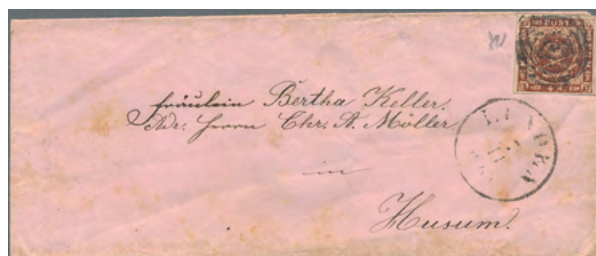 Fräulein Bertha Keller.
Adr. Herrn Chr. A. Möller
in
Husum.